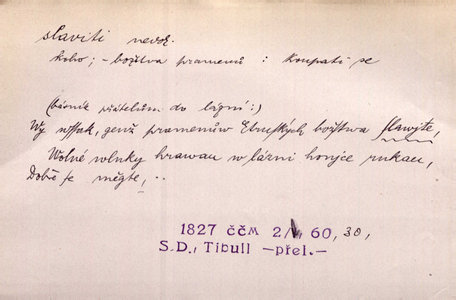 slaviti nedok.
koho; – božstva pramenů : koupati se
(básník přátelům do lázní:)
Wy wssak, genž pramenůw Etruských božstwa slawjte,
Wolné wlnky hrawau w lázni honjce rukau,
Dobře se měgte, ..
1827 ČČM 2/1, 60, 30,
S.D., Tibull —přel.—